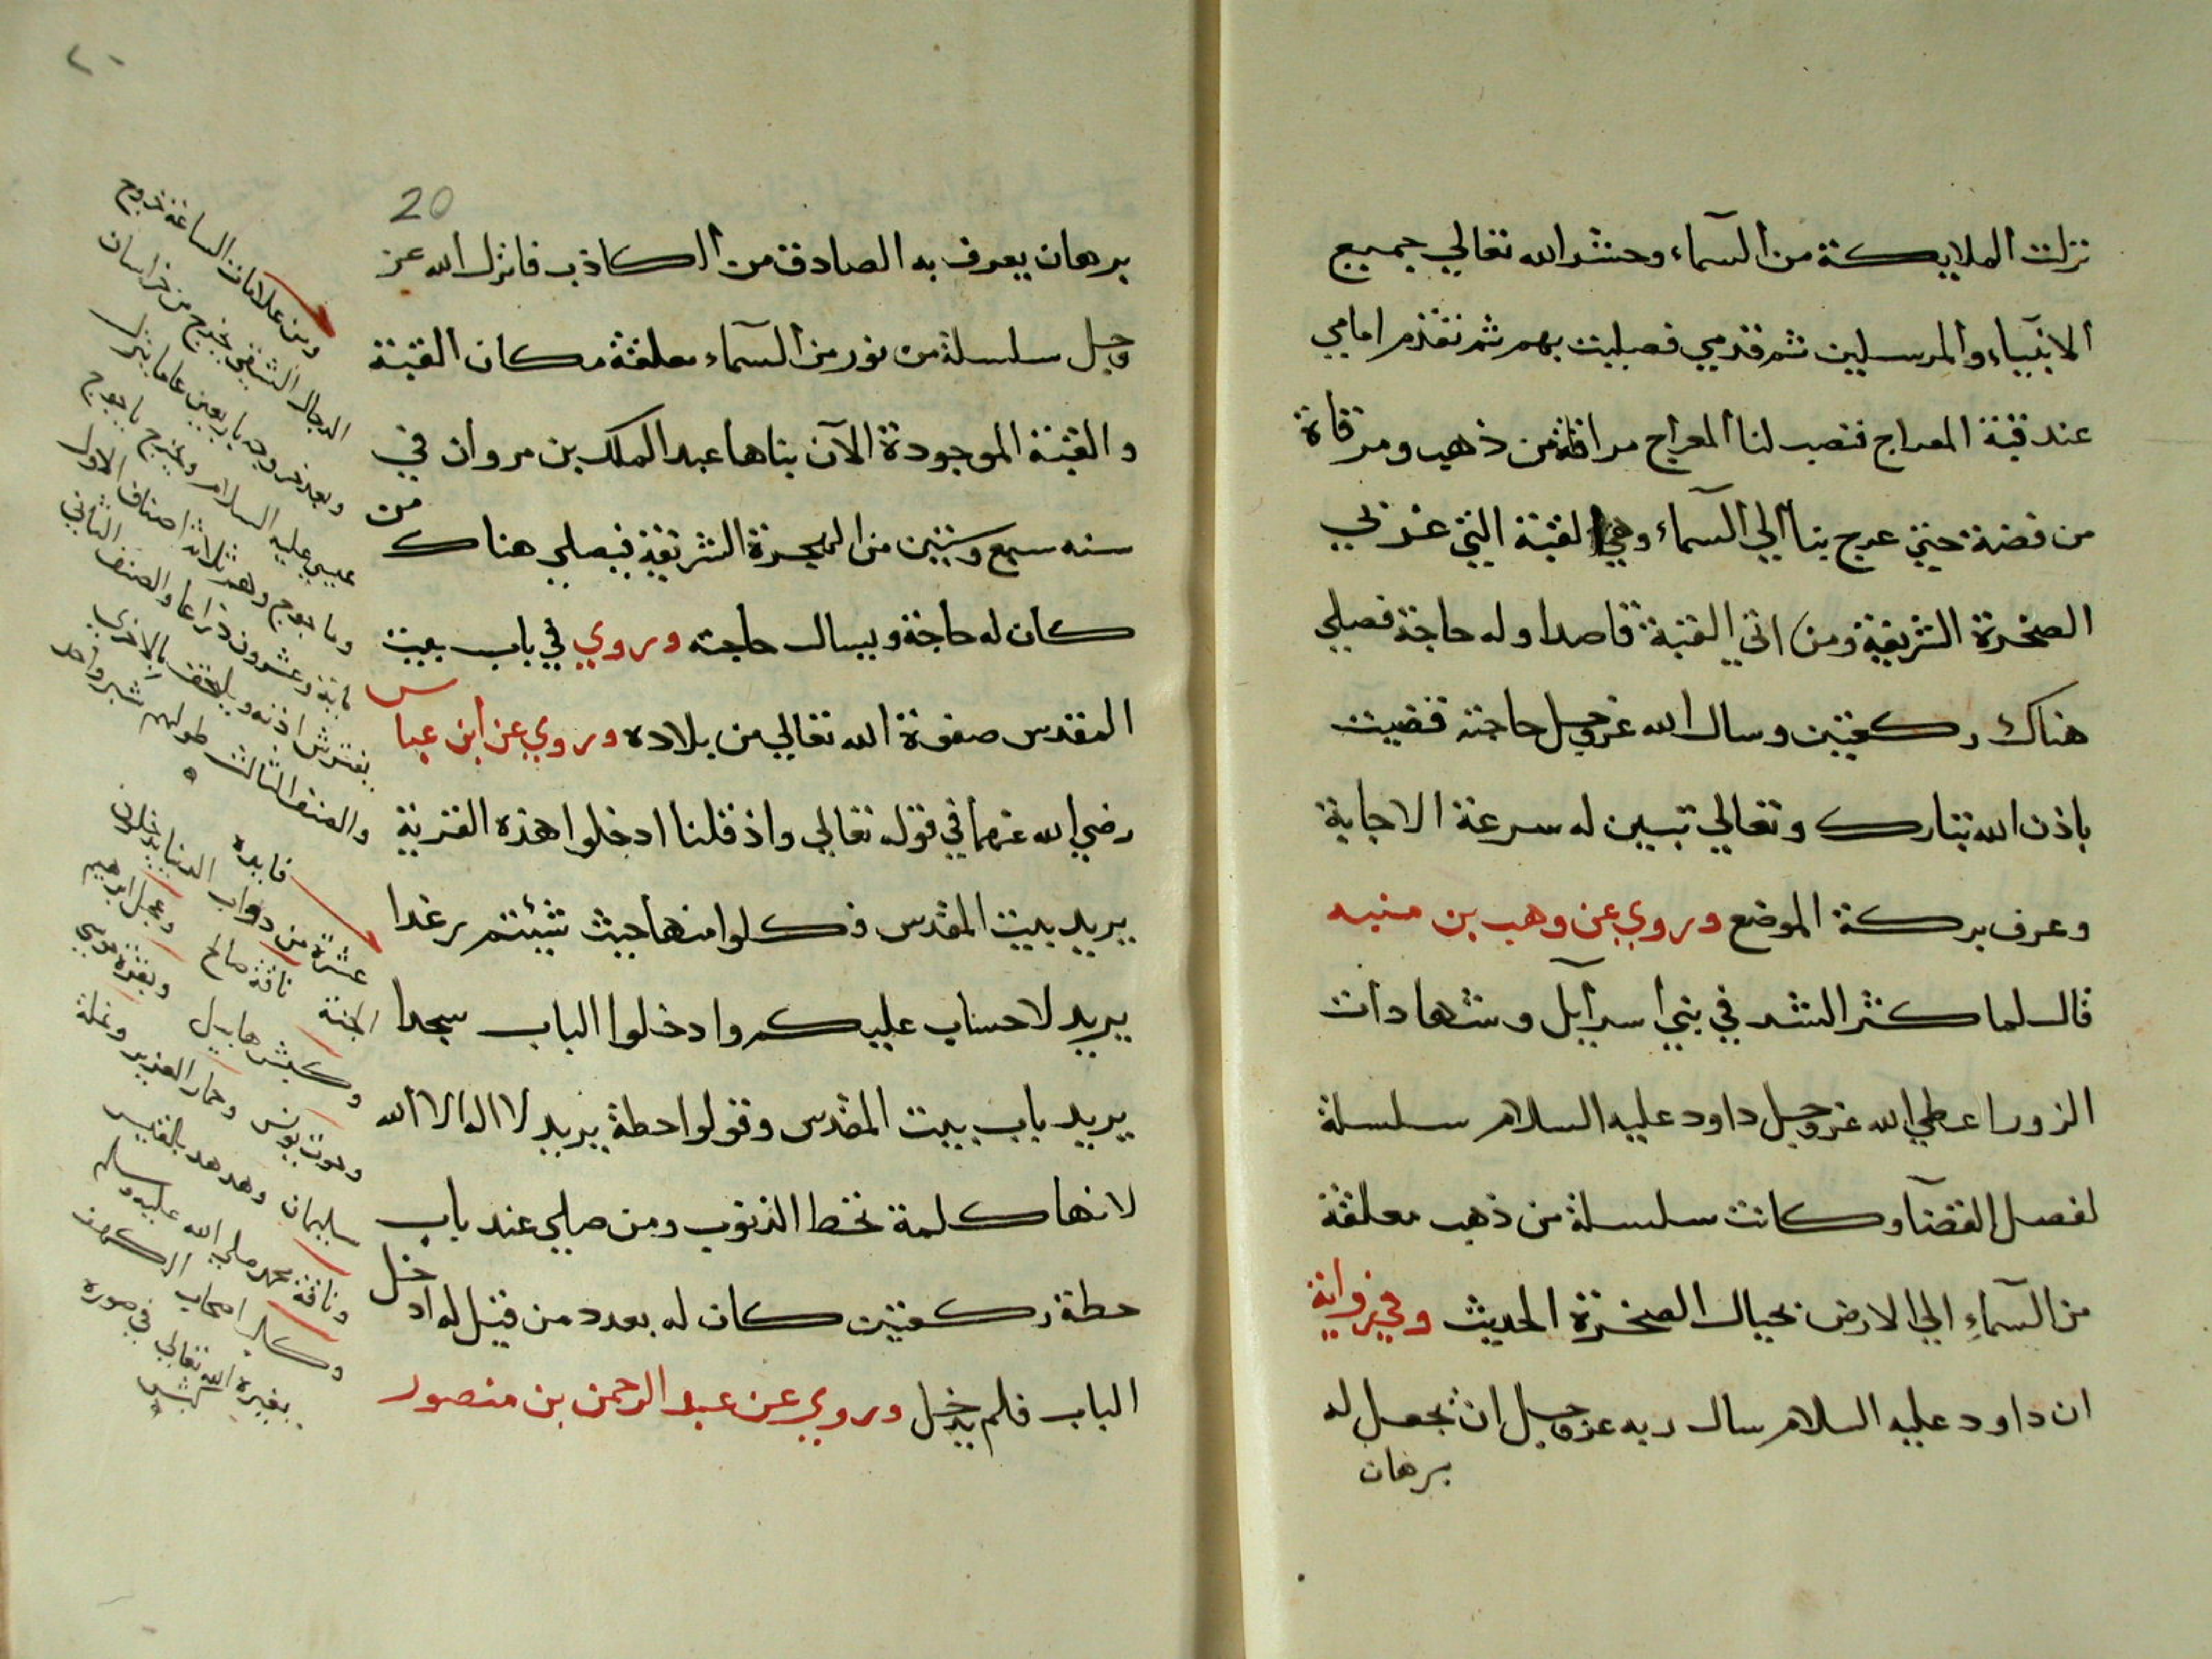 نزلت الملايكة من السماء وحشر الله تعالي جميع
الانبياء والمرسلين ثم قدمي فصليت بهم ثم تقدم امامي
عند قبة المعراج فنصب لنا المعراج مرقاة من ذهب ومرقاة
من فضة حتي عرج بنا الي السماء وهي القبة التي غربي
الصخرة الشريفة ومن اتي القبة قاصدا وله حاجة فصلي
هناك ركعتين وسال الله عز وجل حاجته قضيت
باذن الله تبارك وتعالي تبين له سرعة الاجابة
وعرف بركة الموضع وروي عن وهب بن منبه
قال لما كثر الشر في بني اسرآيل وشهادات
الزور اعطي الله عز وجل داود عليه السلام سلسلة
لفصل القضآ وكانت سلسلة من ذهب معلقة
من السماء الي الارض بحيال الصخرة الحديث وفي رواية
ان داود عليه السلام سال ربه عز وجل ان يجعل له
برهان
٢٠
20
برهان يعرف به الصادق من الكاذب فانزل الله عز
وجل سلسلة من نور من السماء معلقة مكان القبة
والقبة الموجودة الآن بناها عبد الملك بن مروان في
سنه سبع وستين من الهجرة الشريفة فيصلي هناك من
كان له حاجة ويسال حاجته وروي في باب بيت
المقدس صفوة الله تعالي من بلاده وروي عن ابن عباس
رضي الله عنهما في قوله تعالي واذ قلنا ادخلوا هذه القرية
يريد بيت المقدس فكلوا منها حيث شئتم رغدا
يريد لا حساب عليكم وادخلوا الباب سجدا
يريد باب بيت المقدس وقولوا حطة يريد لا اله الا الله
لانها كلمة تحط الذنوب ومن صلي عند باب
حطة ركعتين كان له بعدد من قيل له ادخل
الباب فلم يدخل وروي عن عبد الرحمن بن منصور
ومن علامات الساعة خروج
الدجال الشقي يخرج من خراسان
وبعد خروجه باربعين عاما ينزل
عيسي عليه السلام ويخرج ياجوج
وماجوج وهم ثلاثة اصناف الاول
ماية وعشرون ذراعا والصنف الثاني
يفترش اذنه ويلتحف بالاخري
والصنف الثالث طولهم شبر واحد
فايده
عشرة من دواب الدنيا يدخلون
الجنة ناقة صالح وعجل ابرهيم
وكبش هابيل وبقرة موسي
وحوت يونس وحمار العزير ونملة
سليمان وهدهد بلقيس
وناقة محمد صلي الله عليه وسلم
وكلب اصحاب الكهف
يغيره الله تعالي في صورة
كبش